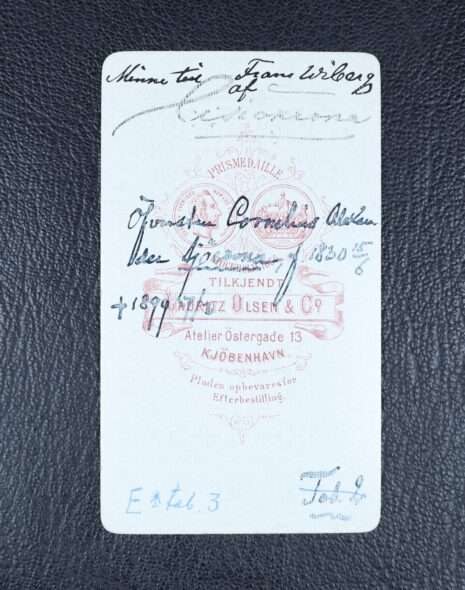 Minne till Frans Wiberg
af
PRISMEDAILLE
Öfversten Cornelius Alexan
der f 1830 15/6
TILKJENDT
† 1899
LAURITZ OLSEN & Co
Atelier Östergade 13
KJÖBENHAVN.
Pladen opbevares for
Efterbestilling.
E * tab. 3
Tab. 2